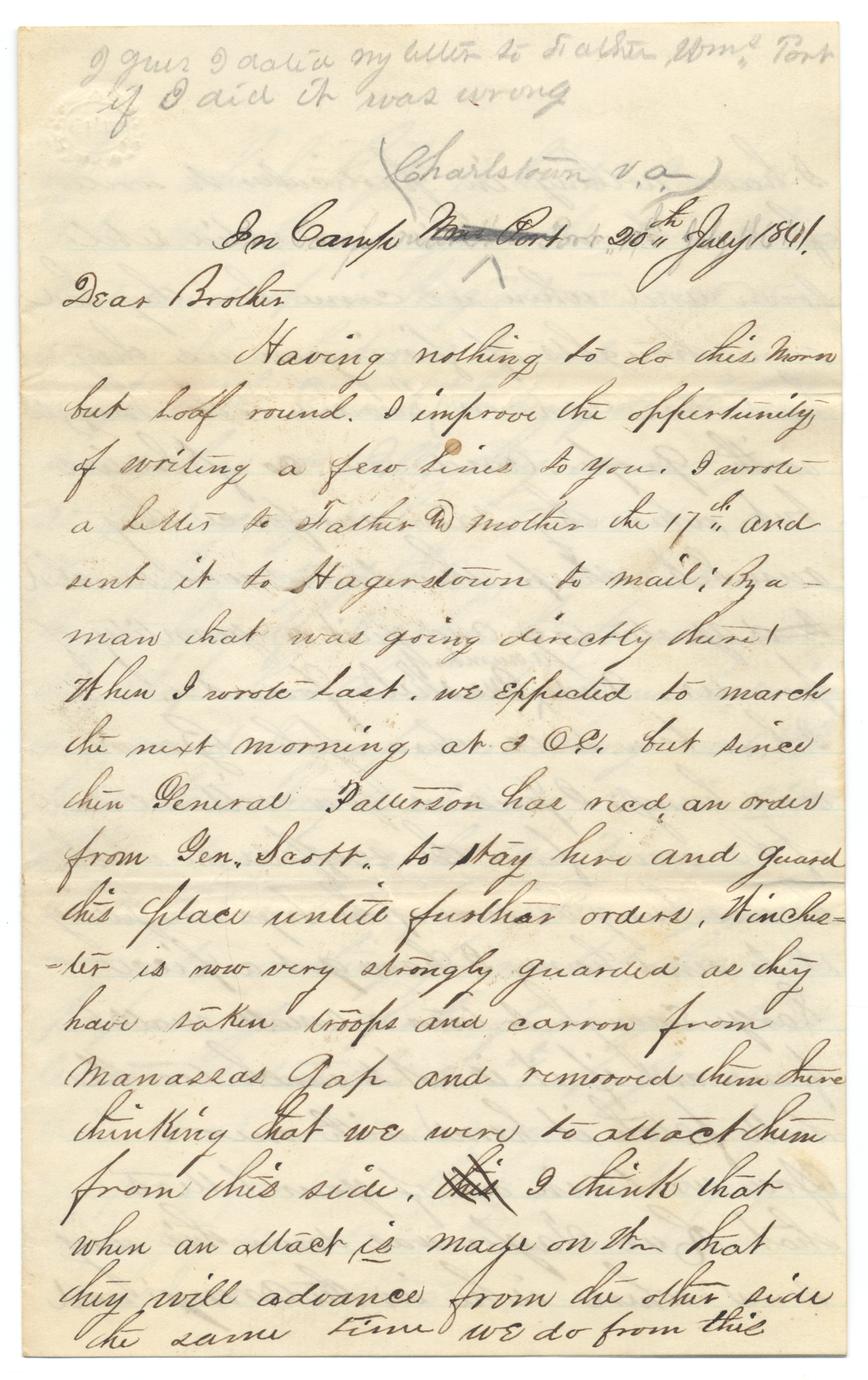 I gues I dated my letter to Father Wms Port
if I did it was wrong
(Charlstown v.a)
In Camp Wms Port 20th July 1861.
Dear Brother
Having nothing to do this Morn
but loaf round. I improve the oppertunity
of writing a few lines to you. I wrote
a letter to Father & mother the 17th and
sent it to Hagerstown to mail; By a -
man that was going directly there!
When I wrote last. we expected to march
the next morning at 3 OC. but since
then General Patterson has recd an order
from Gen. Scott. to stay here and guard
this place untill further orders, Winches=
=ter is now very strongly guarded as they
have taken troops and cannon from
Manassas Gap and remooved them there
thinking that we were to attact them
from this side. this I think that
when an attact is made on W that
they will advance from the other side
the same time we do from this